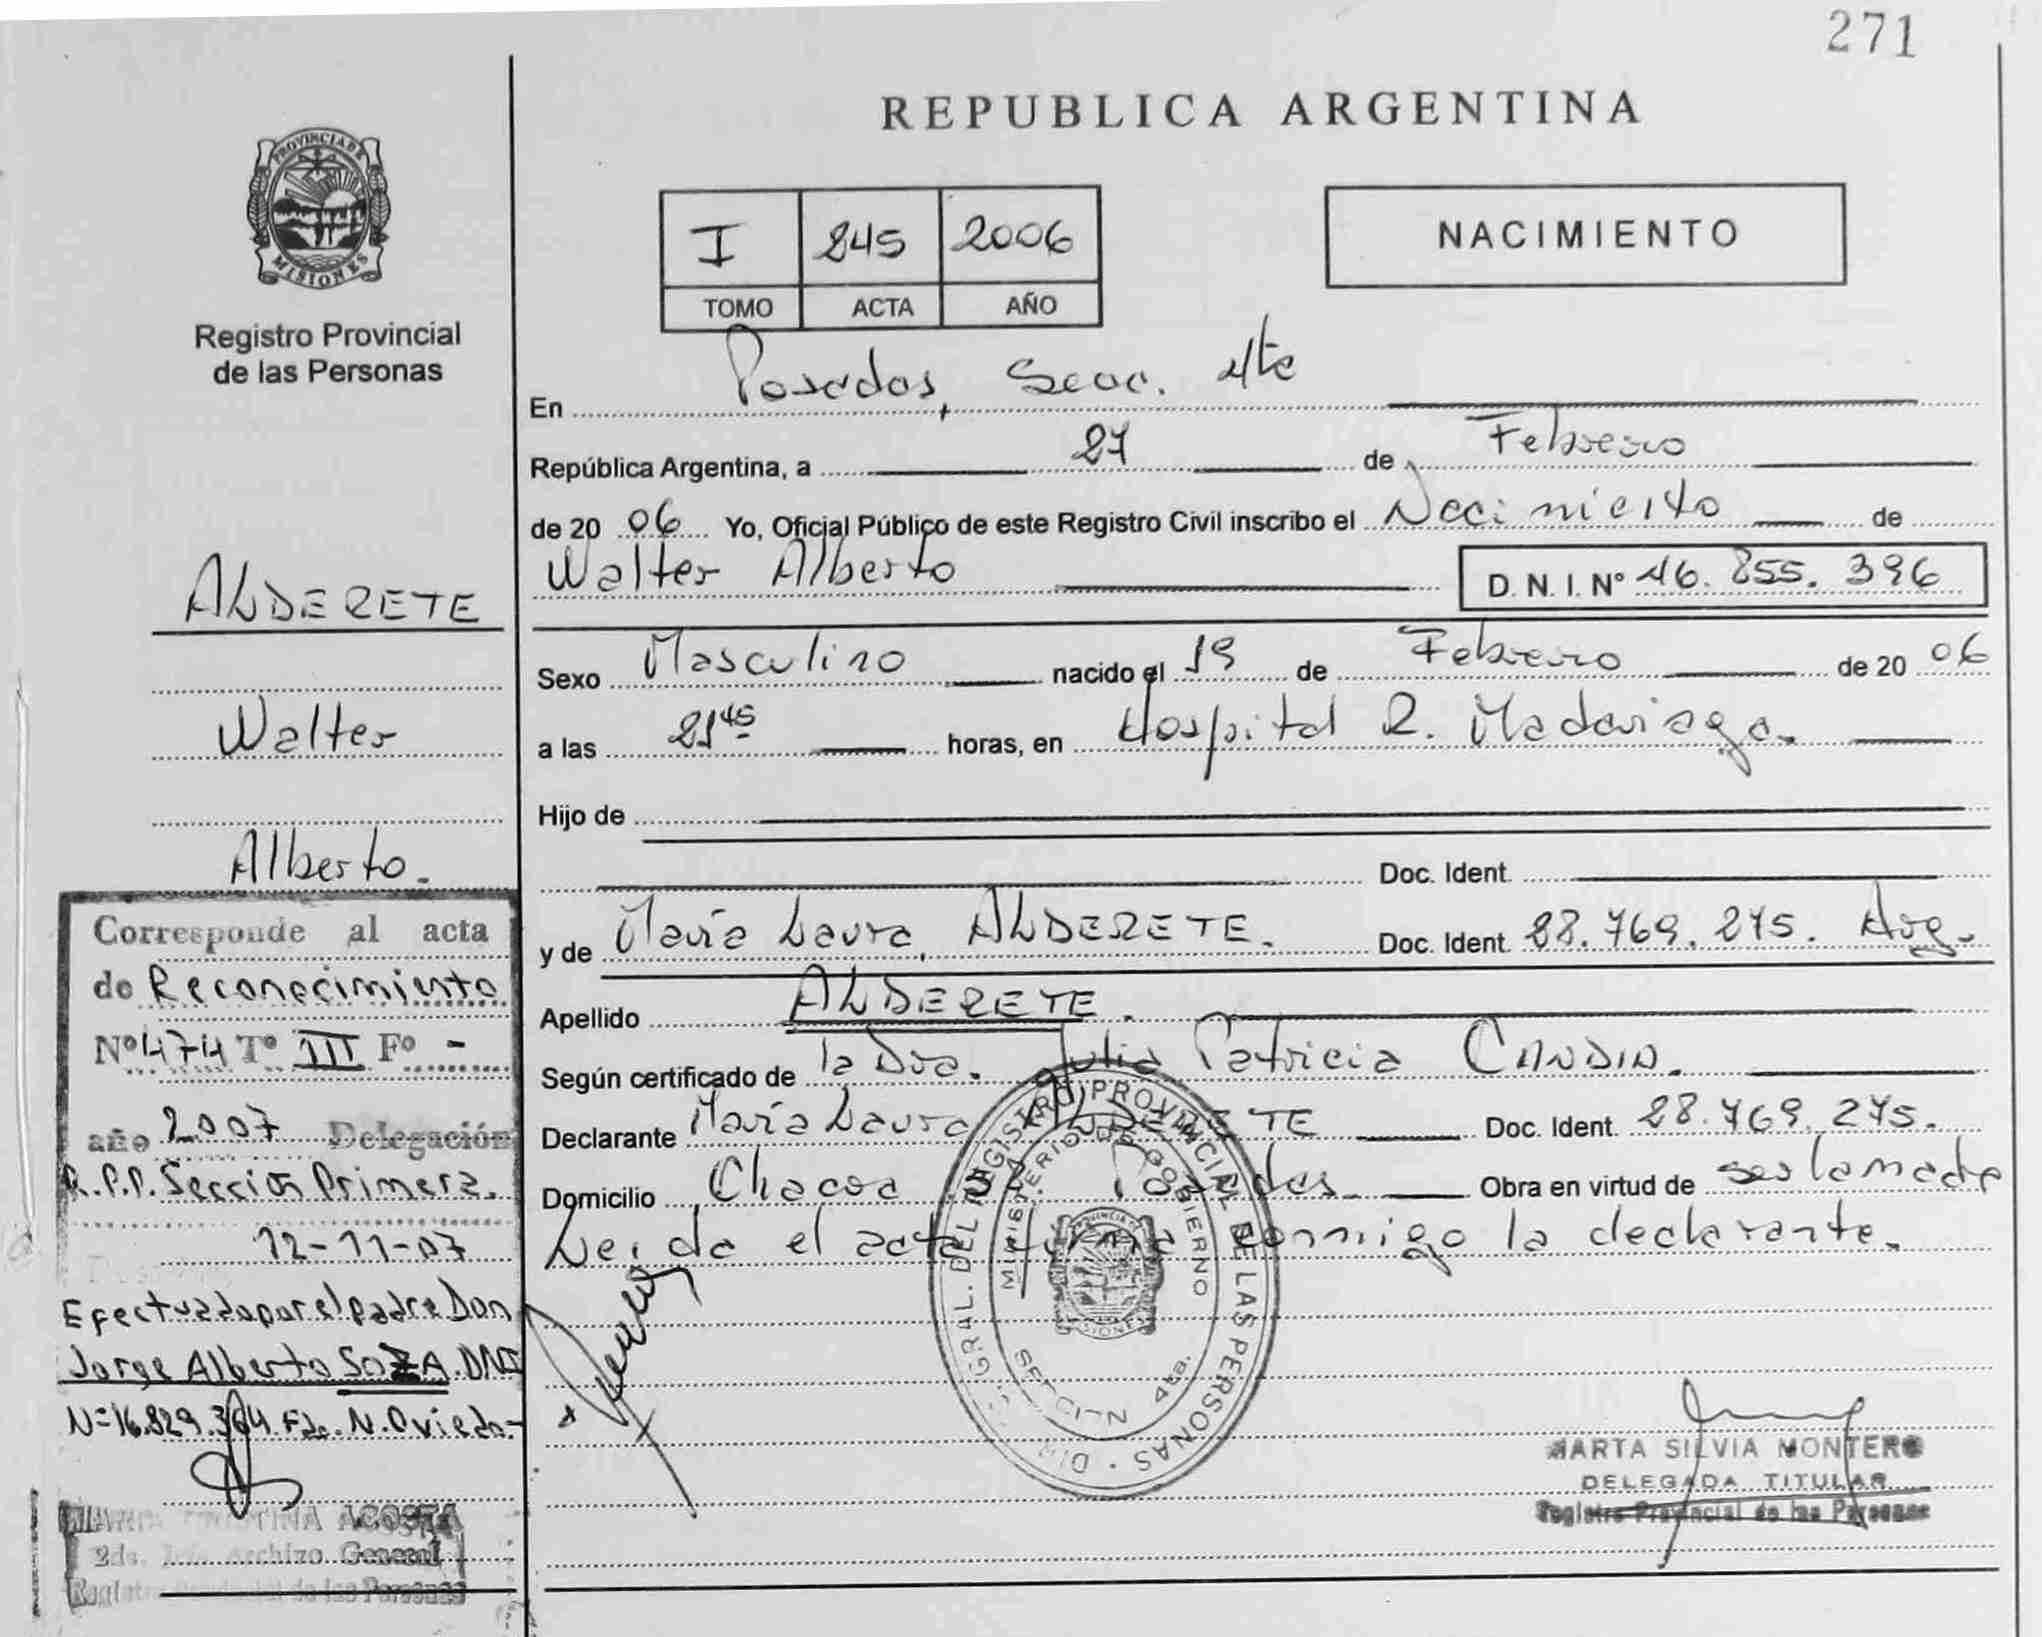 271
REPUBLICA ARGENTINA
PROVINCIA DE
MISIONES
Registro Provincial
de las Personas
I 245 2006
TOMO ACTA AÑO
NACIMIENTO
En Posadas, Secc. 4ta
República Argentina, a 27 de Febrero
de 20 06 Yo, Oficial Público de este Registro Civil inscribo el Nacimiento de
Walter Alberto D. N. I. Nº 46.855.396
Sexo Masculino nacido el 19 de Febrero de 20 06
a las 21 45 horas, en Hospital R. Madariaga.
Hijo de
Doc. Ident.
y de María Laura, ALDERETE. Doc. Ident. 28.769.275. Arg.
Apellido ALDERETE.
Según certificado de la Dra. Julia Patricia
Declarante María Laura ALDERETE Doc. Ident. 28.769.275.
Domicilio Chacra Posadas. Obra en virtud de ser la madre
Leida el acta firma conmigo la declarante.
ALDERETE
Walter
Alberto.
Corresponde al acta
de Reconocimiento
Nº 474 Tº III Fº -
año 2007 Delegación
R.P.P. Sección Primera.
12-11-07
Efectuada por el padre Don
Jorge Alberto SOZA. DNI
N= 16.829.364. Fdo. N. Oviedo.-
ACOSTA
Archivo General
Registro Provincial de las Personas
DIR. GRAL. DEL REGISTRO PROVINCIAL DE LAS PERSONAS
MINISTERIO DE GOBIERNO
PROVINCIA DE
MISIONES
SECCION 4ta.
MARTA SILVIA MONTERO
DELEGADA TITULAR
Registro Provincial de las Personas